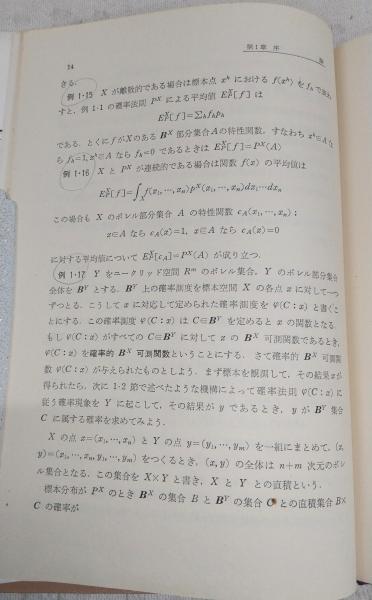 14
第1章 序
きる.
例 1・15 X が離散的である場合は標本点 xʰ における f(xʰ) を fₕ で表わ
すと, 例 1・1 の確率法則 Pˣ による平均値 Eˣ[f] は
Eˣ[f]=∑ₕfₕpₕ
である. とくに f が X のある Bˣ 部分集合 A の特性関数, すなわち xʰ∈A な
ら fₕ=1, xʰ∉A なら fₕ=0 であるときは Eˣ[f]=Pˣ(A)
例 1・16 X と Pˣ が連続的である場合は関数 f(x) の平均値は
Eˣ[f]=∫ₓf(x₁,…,xₙ)pˣ(x₁,…,xₙ)dx₁…dxₙ
この場合も X のボレル部分集合 A の特性関数 cA(x₁,…,xₙ);
x∈A なら cA(x)=1, x∉A なら cA(x)=0
に対する平均値について Eˣ[cA]=Pˣ(A) が成り立つ.
例 1・17 Y をユークリッド空間 Rᵐ のボレル集合, Y のボレル部分集合
全体を Bʸ とする. Bʸ 上の確率測度を標本空間 X の各点 x に対して一つ
ずつとる. こうして x に対応して定められた確率測度を φ(C:x) と書くこ
とにする. この確率測度 φ(C:x) は C∈Bʸ を定めると x の関数となる.
もし φ(C:x) がすべての C∈Bʸ に対して x の Bˣ 可測関数であるとき,
φ(C:x) を確率的 Bˣ 可測関数ということにする. さて確率的 Bˣ 可測関
数 φ(C:x) が与えられたものとしよう. まず標本を観測して, その結果 x が
得られたら, 次に 1・2 節で述べたような機構によって確率法則 φ(C:x) に
従う確率現象を Y に起こして, その結果が y であるとき, y が Bʸ 集合
C に属する確率を求めてみよう.
X の点 x=(x₁,…,xₙ) と Y の点 y=(y₁,…,yₘ) を一組にまとめて, (x,
y)=(x₁,…,xₙ,y₁,…,yₘ) をつくるとき, (x,y) の全体は n+m 次元のボレ
ル集合となる. この集合を X×Y と書き, X と Y との直積という.
標本分布が Pˣ のとき Bˣ の集合 B と Bʸ の集合 C との直積集合 B×
C の確率が